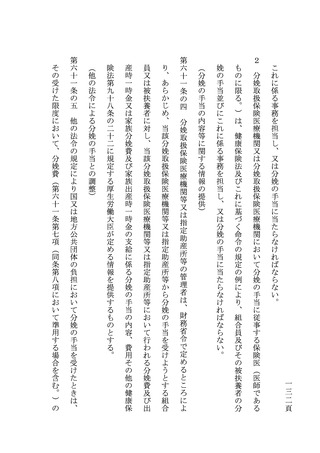 これに係る事務を担当し、又は分娩の手当に当たらなければならない。
2　分娩取扱保険医療機関又は分娩取扱保険医療機関において分娩の手当に従事する保険医（医師である
ものに限る。）は、健康保険法及びこれに基づく命令の規定の例により、組合員及びその被扶養者の分
娩の手当並びにこれに係る事務を担当し、又は分娩の手当に当たらなければならない。
（分娩の手当の内容等に関する情報の提供）
第六十一条の四　分娩取扱保険医療機関等又は指定助産所等の管理者は、財務省令で定めるところによ
り、あらかじめ、当該分娩取扱保険医療機関等又は指定助産所等から分娩の手当を受けようとする組合
員又は被扶養者に対し、当該分娩取扱保険医療機関等又は指定助産所等において行われる分娩費及び出
産時一時金又は家族分娩費及び家族出産時一時金の支給に係る分娩の手当の内容、費用その他の健康保
険法第九十八条の二十二に規定する厚生労働大臣が定める情報を提供するものとする。
（他の法令による分娩の手当との調整）
第六十一条の五　他の法令の規定により国又は地方公共団体の負担において分娩の手当を受けたときは、
その受けた限度において、分娩費（第六十一条第七項（同条第八項において準用する場合を含む。）の
一三二頁